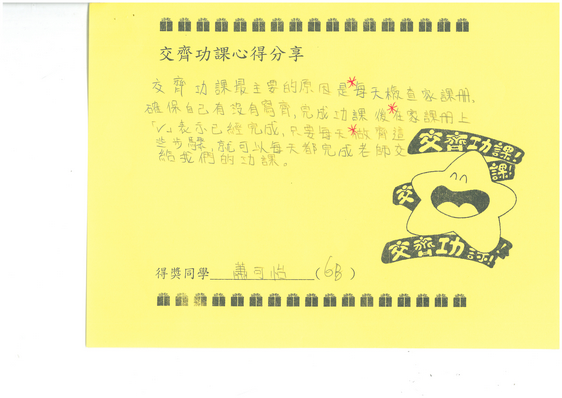 交齊功課心得分享
交齊功課最主要的原因是*每天檢查家課冊,
確保自己有沒有寫齊,完成功課後*在家課冊上
「✓」表示已經完成,只要每天*做齊這
些步驟,就可以每天都完成老師交
給我們的功課。
交齊功課!
課!
交
交齊功課!
得獎同學 蕭可怡 (6B)